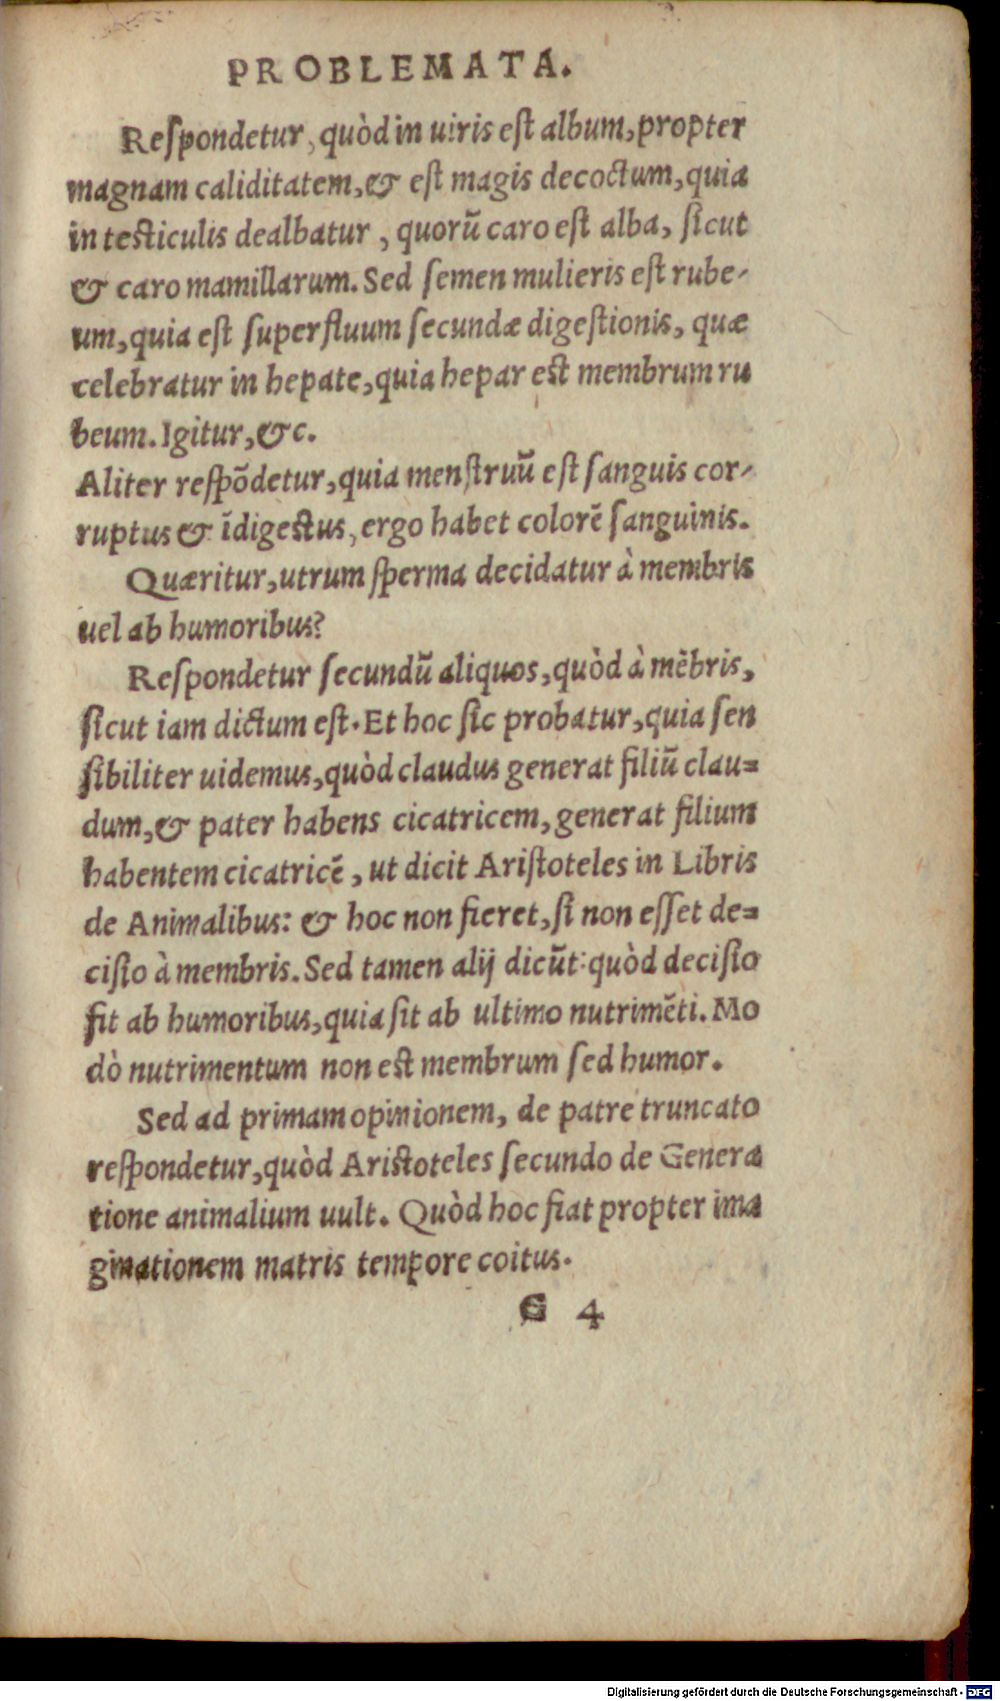 PROBLEMATA.
Reſpondetur, quòd in uiris eſt album, propter
magnam caliditatem, & eſt magis decoctum, quia
in teſticulis dealbatur, quorū caro eſt alba, ſicut
& caro mamillarum. Sed ſemen mulieris eſt rube-
um, quia eſt ſuperfluum ſecundæ digeſtionis, quæ
celebratur in hepate, quia hepar eſt membrum ru
beum. Igitur, &c.
Aliter reſpōdetur, quia menſtruū eſt ſanguis cor-
ruptus & īdigeſtus, ergo habet colorē ſanguinis.
Quæritur, utrum ſperma decidatur à membris
uel ab humoribus?
Reſpondetur ſecundū aliquos, quòd à mēbris,
ſicut iam dictum eſt. Et hoc ſic probatur, quia ſen
ſibiliter uidemus, quòd claudus generat filiū clau=
dum, & pater habens cicatricem, generat filium
habentem cicatricē, ut dicit Ariſtoteles in Libris
de Animalibus: & hoc non fieret, ſi non eſſet de=
ciſio à membris. Sed tamen alij dicūt: quòd deciſio
fit ab humoribus, quia ſit ab ultimo nutrimēti. Mo
dò nutrimentum non eſt membrum ſed humor.
Sed ad primam opinionem, de patre truncato
reſpondetur, quòd Ariſtoteles ſecundo de Genera
tione animalium uult. Quòd hoc fiat propter ima
ginationem matris tempore coitus.
G 4
Digitalisierung gefördert durch die Deutsche Forschungsgemeinschaft - DFG